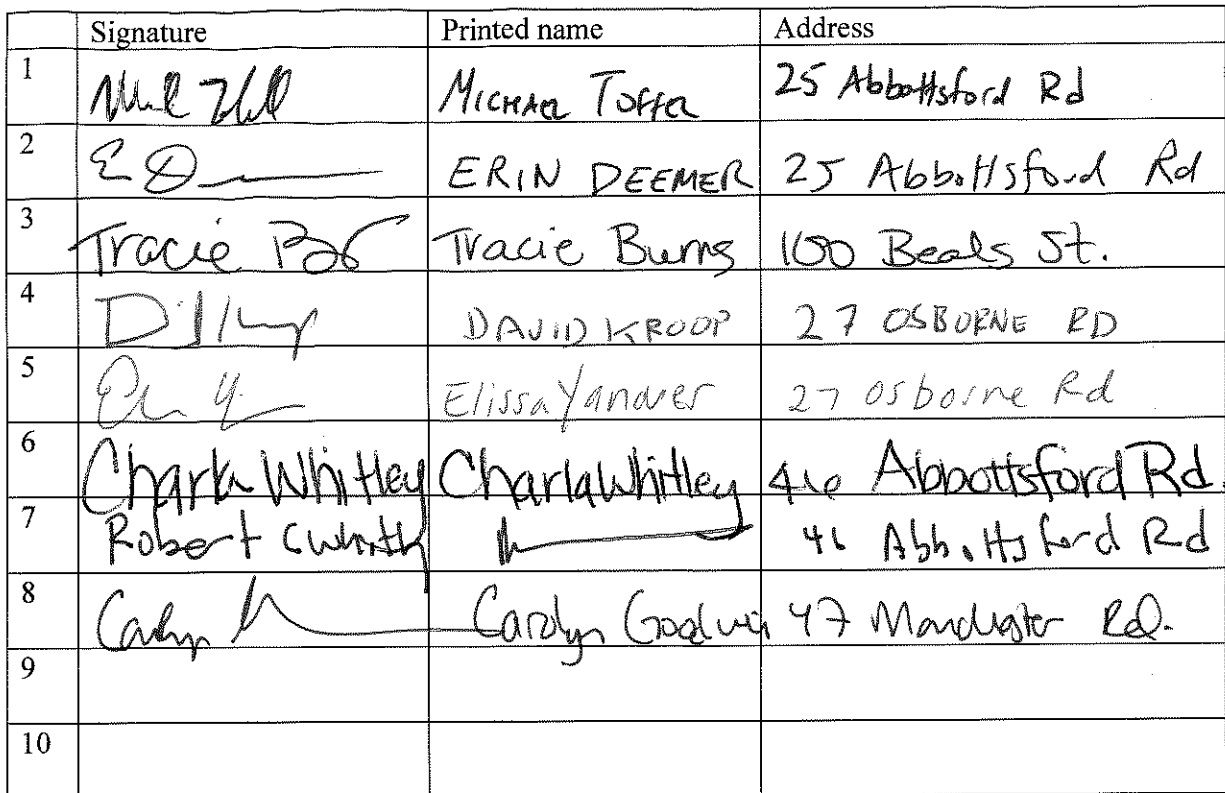 Signature Printed name Address
1 MICHAEL TOFFEL 25 Abbottsford Rd
2 ERIN DEEMER 25 Abbottsford Rd
3 Tracie Tracie Burns 100 Beals St.
4 DAVID KROOP 27 OSBORNE RD
5 Elissa Yanover 27 Osborne Rd
6 Charla Whitley Charla Whitley 46 Abbottsford Rd.
7 Robert C Whitley 46 Abbottsford Rd
8 Carolyn Carolyn Goodwin 47 Manchester Rd.
9
10